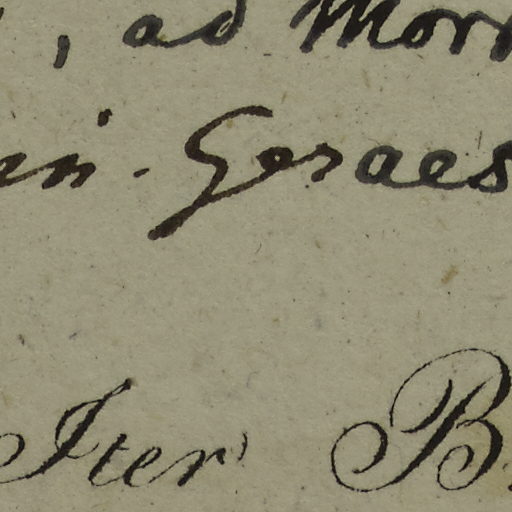 , ad Morr
in - Geraes
Iter B